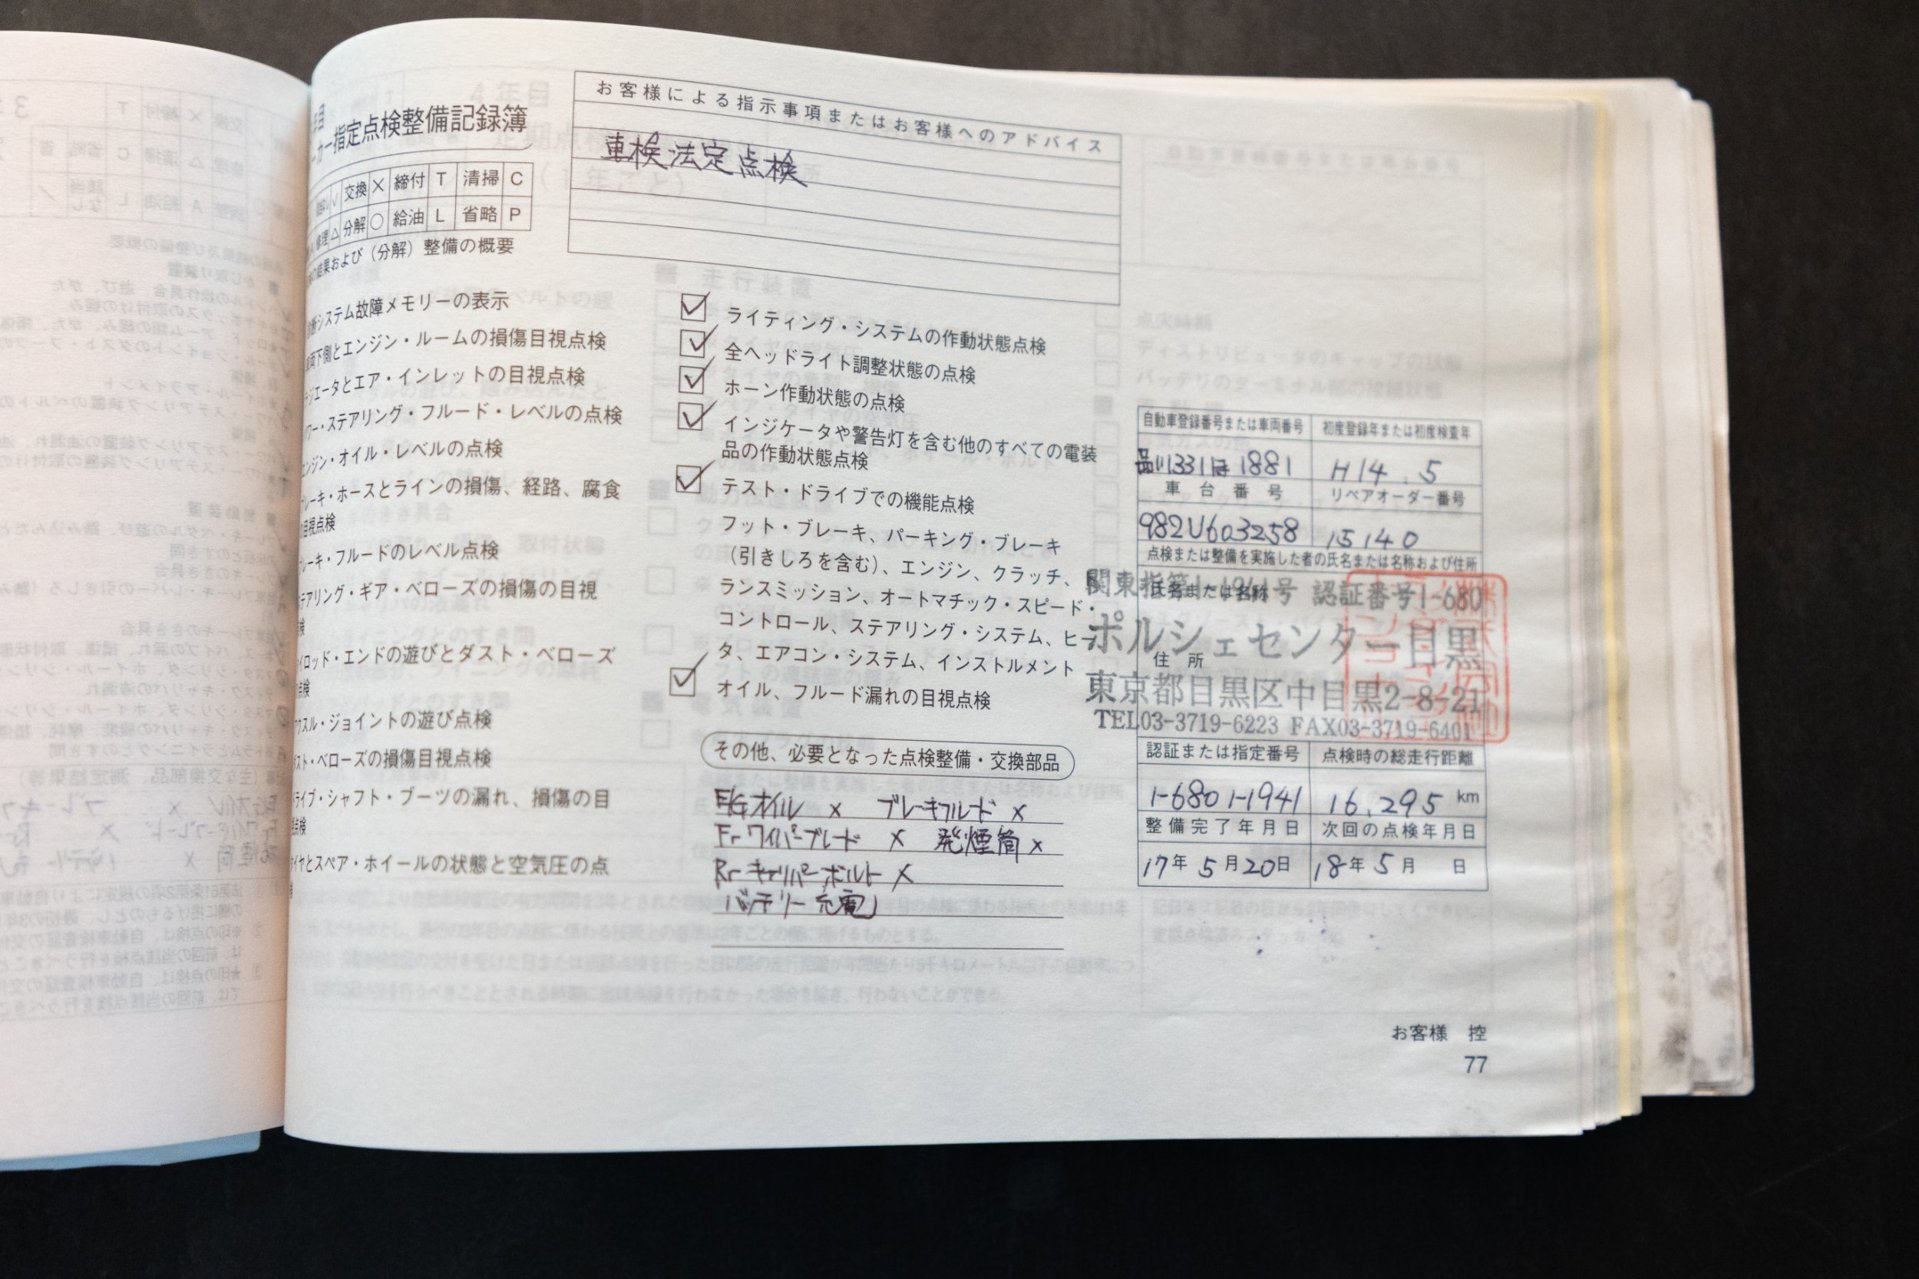 指定点検整備記録簿
交換 × 締付 T 清掃 C
修理 △ 分解 ○ 給油 L 省略 P
結果および（分解）整備の概要
システム故障メモリーの表示
下側とエンジン・ルームの損傷目視点検
ジエータとエア・インレットの目視点検
ワー・ステアリング・フルード・レベルの点検
エンジン・オイル・レベルの点検
レーキ・ホースとラインの損傷、経路、腐食
目視点検
レーキ・フルードのレベル点検
ステアリング・ギア・ベローズの損傷の目視
検
イロッド・エンドの遊びとダスト・ベローズ
点検
クスル・ジョイントの遊び点検
スト・ベローズの損傷目視点検
ライブ・シャフト・ブーツの漏れ、損傷の目
点検
イヤとスペア・ホイールの状態と空気圧の点
お客様による指示事項またはお客様へのアドバイス
車検法定点検
ライティング・システムの作動状態点検
全ヘッドライト調整状態の点検
ホーン作動状態の点検
インジケータや警告灯を含む他のすべての電装
品の作動状態点検
テスト・ドライブでの機能点検
フット・ブレーキ、パーキング・ブレーキ
（引きしろを含む）、エンジン、クラッチ、
ランスミッション、オートマチック・スピード・
コントロール、ステアリング・システム、ヒー
タ、エアコン・システム、インストルメント
オイル、フルード漏れの目視点検
その他、必要となった点検整備・交換部品
E/Gオイル × ブレーキフルード ×
Fr ワイパーブレード × 発煙筒 ×
Rr キャリパーボルト ×
バッテリー充電
自動車登録番号または車両番号 初度登録年または初度検査年
品川331 1881 H14.5
車台番号 リペアオーダー番号
982U603258 15140
点検または整備を実施した者の氏名または名称および住所
氏名または名称
関東指第1-1941号 認証番号1-680
ポルシェセンター目黒
住所
東京都目黒区中目黒2-8-21
TEL03-3719-6223 FAX03-3719-6401
認証または指定番号 点検時の総走行距離
1-680 1-1941 16,295 km
整備完了年月日 次回の点検年月日
17年 5月 20日 18年 5月 日
お客様 控
77